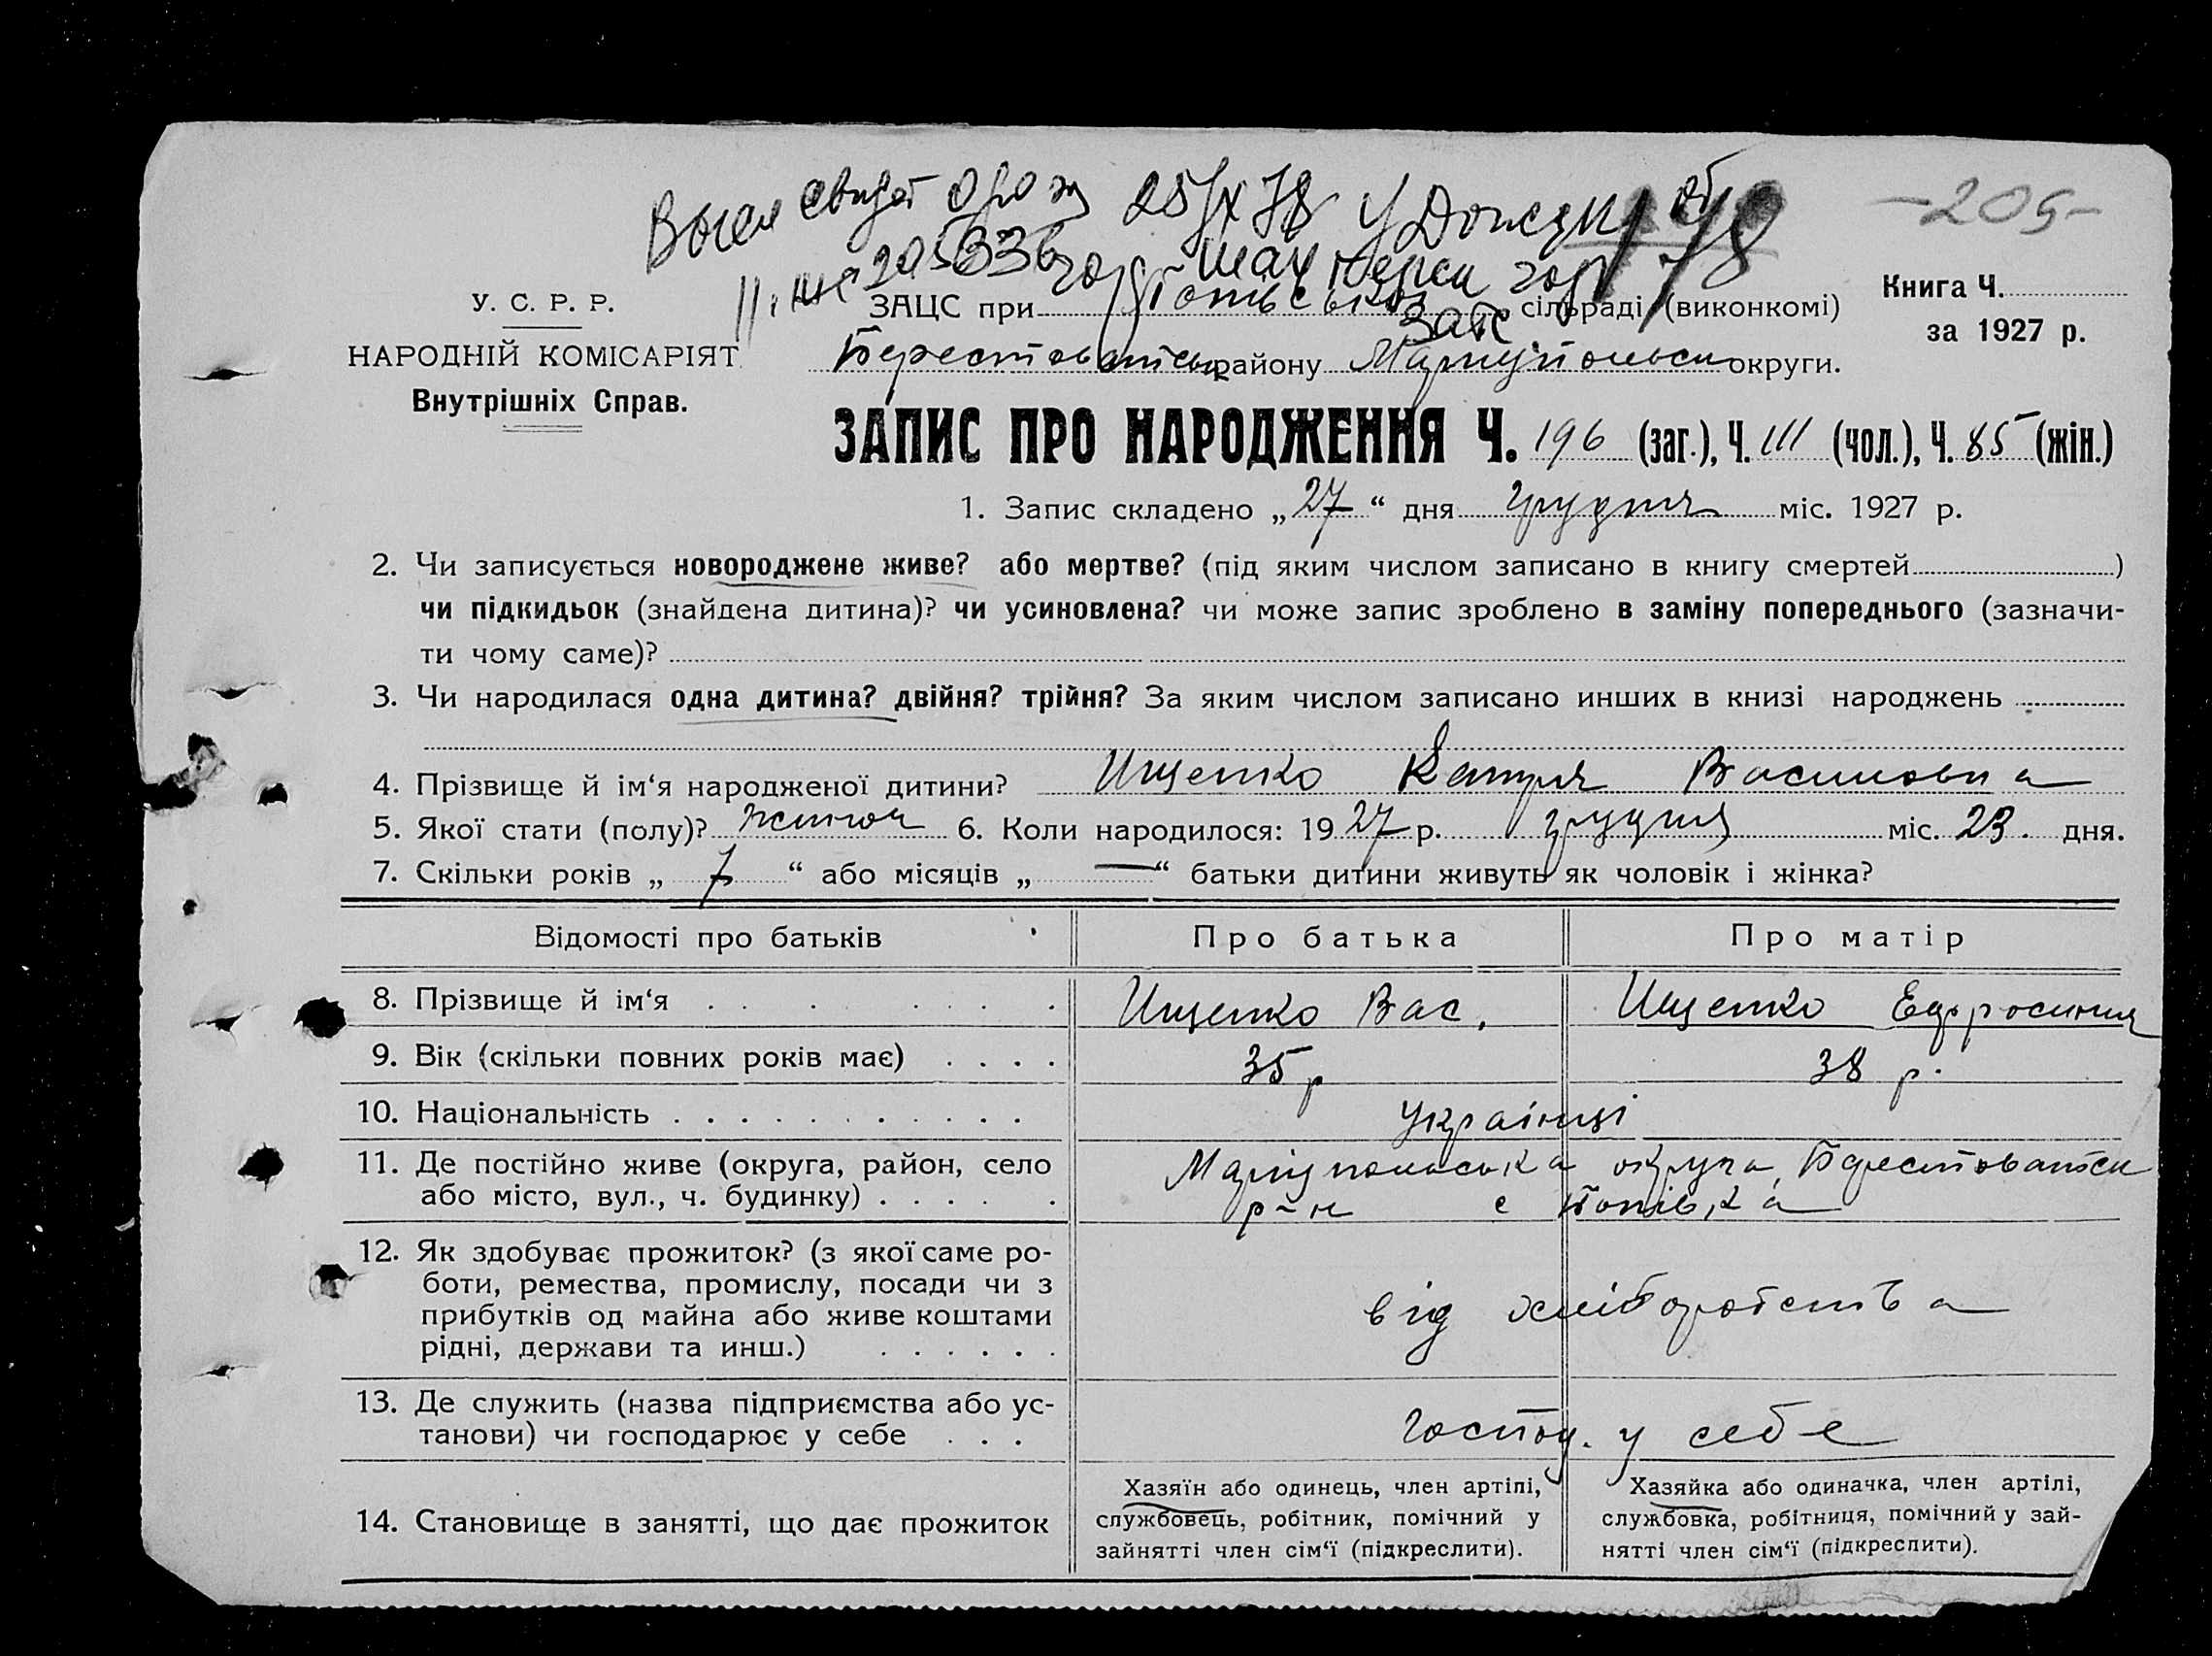 -205-
25/IX 78
178
У. С. Р. Р.
НАРОДНІЙ КОМІСАРІЯТ
Внутрішніх Справ.
Книга Ч.
за 1927 р.
ЗАЦС при Попівськ сільраді (виконкомі)
Берестоватськ району Маріупольськ округи.
ЗАПИС ПРО НАРОДЖЕННЯ Ч. 196 (заг.), Ч. 111 (чол.), Ч. 85 (жін.)
1. Запис складено „ 27 “ дня грудня міс. 1927 р.
2. Чи записується новороджене живе? або мертве? (під яким числом записано в книгу смертей )
чи підкидьок (знайдена дитина)? чи усиновлена? чи може запис зроблено в заміну попереднього (зазначи-
ти чому саме)?
3. Чи народилася одна дитина? двійня? трійня? За яким числом записано инших в книзі народжень
4. Прізвище й ім‘я народженої дитини? Ищенко Катря Василовна
5. Якої стати (полу)? жіноч 6. Коли народилося: 1927 р. грудня міс. 23. дня.
7. Скільки років „ 7 “ або місяців „ — “ батьки дитини живуть як чоловік і жінка?
Відомості про батьків Про батька Про матір
8. Прізвище й ім‘я Ищенко Вас. Ищенко Ефросиния
9. Вік (скільки повних років має) 35 р 38 р.
10. Національність Українці
11. Де постійно живе (округа, район, село Маріупольська округа Берестоватськ
або місто, вул., ч. будинку) р-н с Попівка
12. Як здобуває прожиток? (з якої саме ро-
боти, ремества, промислу, посади чи з
прибутків од майна або живе коштами
рідні, держави та инш.) від хліборобства
13. Де служить (назва підприємства або ус-
танови) чи господарює у себе Господ. у себе
14. Становище в занятті, що дає прожиток
Хазяїн або одинець, член артілі,
службовець, робітник, помічний у
зайнятті член сім‘ї (підкреслити).
Хазяйка або одиначка, член артілі,
службовка, робітниця, помічний у зай-
нятті член сім‘ї (підкреслити).